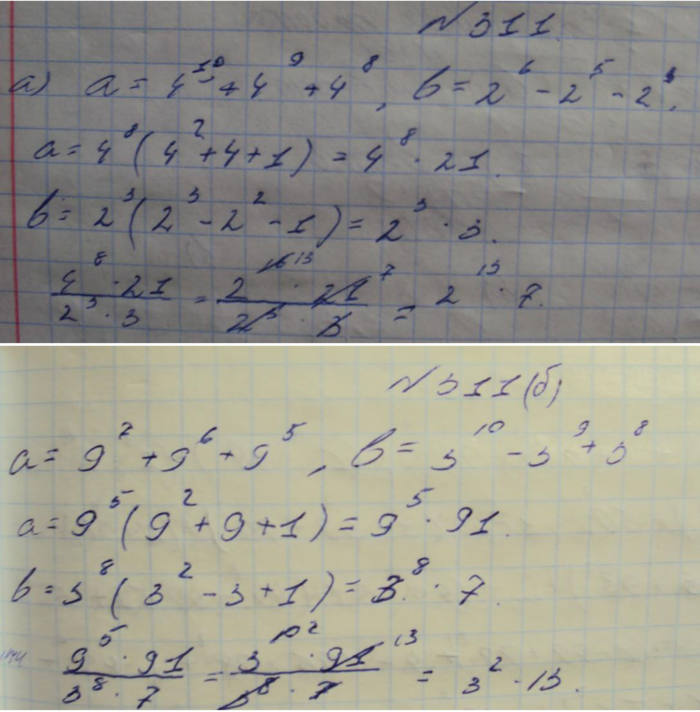 N 311.
а) a = 4¹⁰ + 4⁹ + 4⁸, b = 2⁶ - 2⁵ - 2³.
a = 4⁸(4² + 4 + 1) = 4⁸ · 21.
b = 2³(2³ - 2² - 1) = 2³ · 3.
4⁸ · 21 / 2³ · 3 = 2¹⁶ ¹³ · 21 ⁷ / 2³ · 3 = 2¹³ · 7.
N 311 (б)
a = 9⁷ + 9⁶ + 9⁵, b = 3¹⁰ - 3⁹ + 3⁸
a = 9⁵(9² + 9 + 1) = 9⁵ · 91.
b = 3⁸(3² - 3 + 1) = 3⁸ · 7.
9⁵ · 91 / 3⁸ · 7 = 3¹⁰ ² · 91 ¹³ / 3⁸ · 7 = 3² · 13.